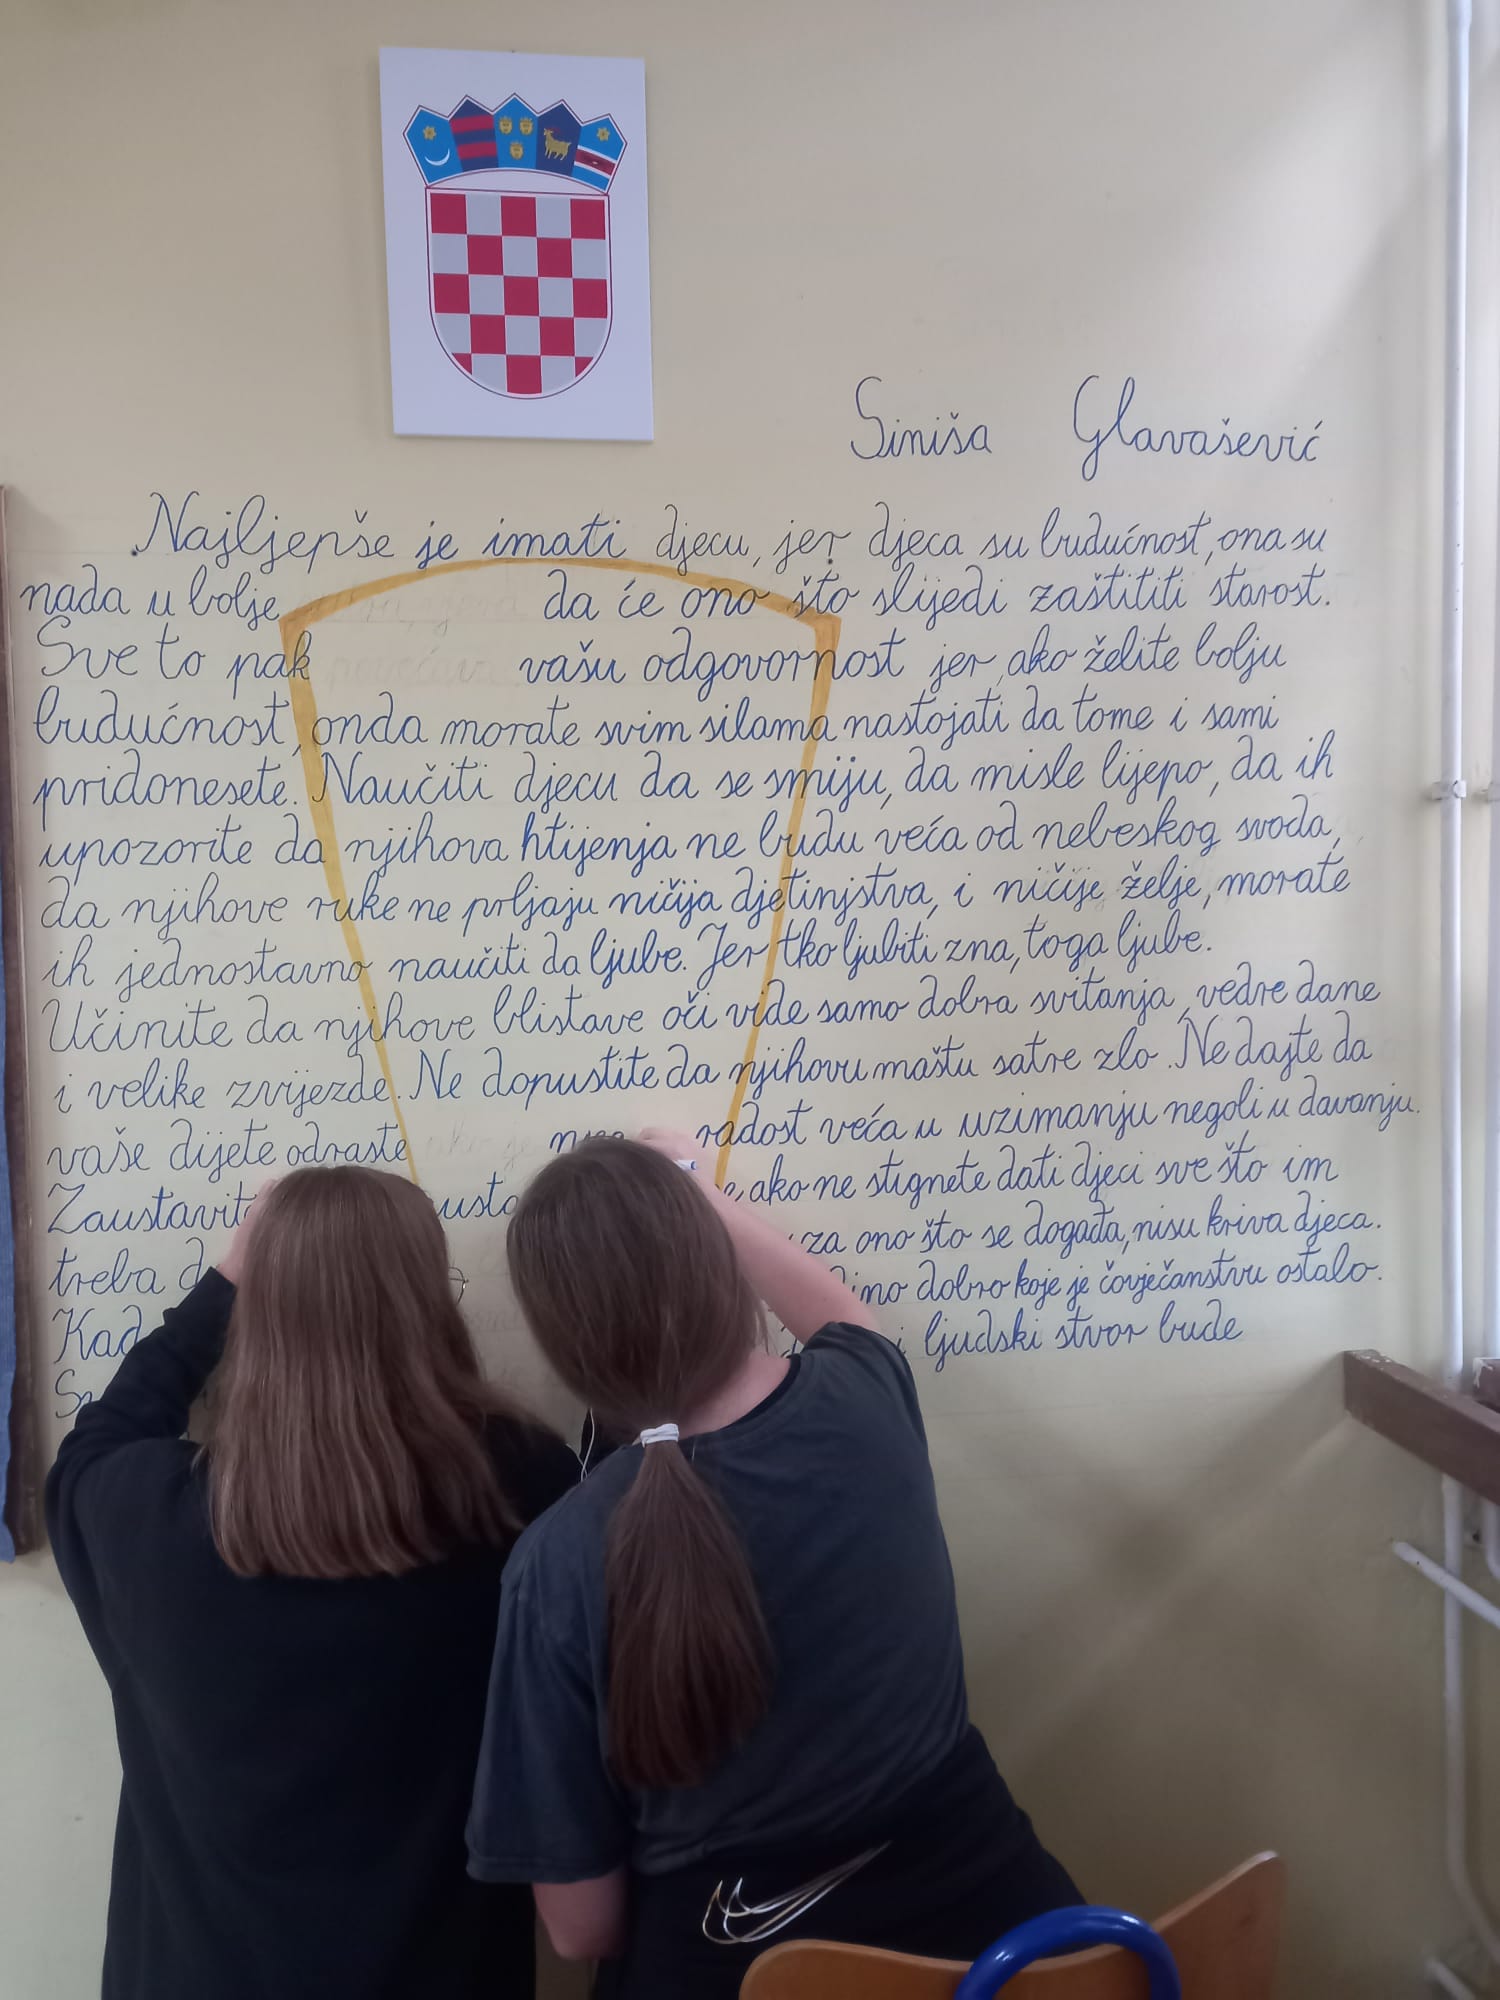 Siniša Glavašević
Najljepše je imati djecu, jer djeca su budućnost, ona su
nada u bolje da će ono što slijedi zaštititi starost.
Sve to pak vašu odgovornost jer, ako želite bolju
budućnost, onda morate svim silama nastojati da tome i sami
pridonesete. Naučiti djecu da se smiju, da misle lijepo, da ih
upozorite da njihova htijenja ne budu veća od nebeskog svoda,
da njihove ruke ne prljaju ničija djetinjstva, i ničije želje, morate
ih jednostavno naučiti da ljube. Jer tko ljubiti zna, toga ljube.
Učinite da njihove blistave oči vide samo dobra svitanja, vedre dane
i velike zvijezde. Ne dopustite da njihovu maštu satre zlo. Ne dajte da
vaše dijete odraste radost veća u uzimanju negoli u davanju.
ako ne stignete dati djeci sve što im
treba za ono što se događa, nisu kriva djeca.
Kad dobro koje je čovječanstvu ostalo.
ljudski stvor bude